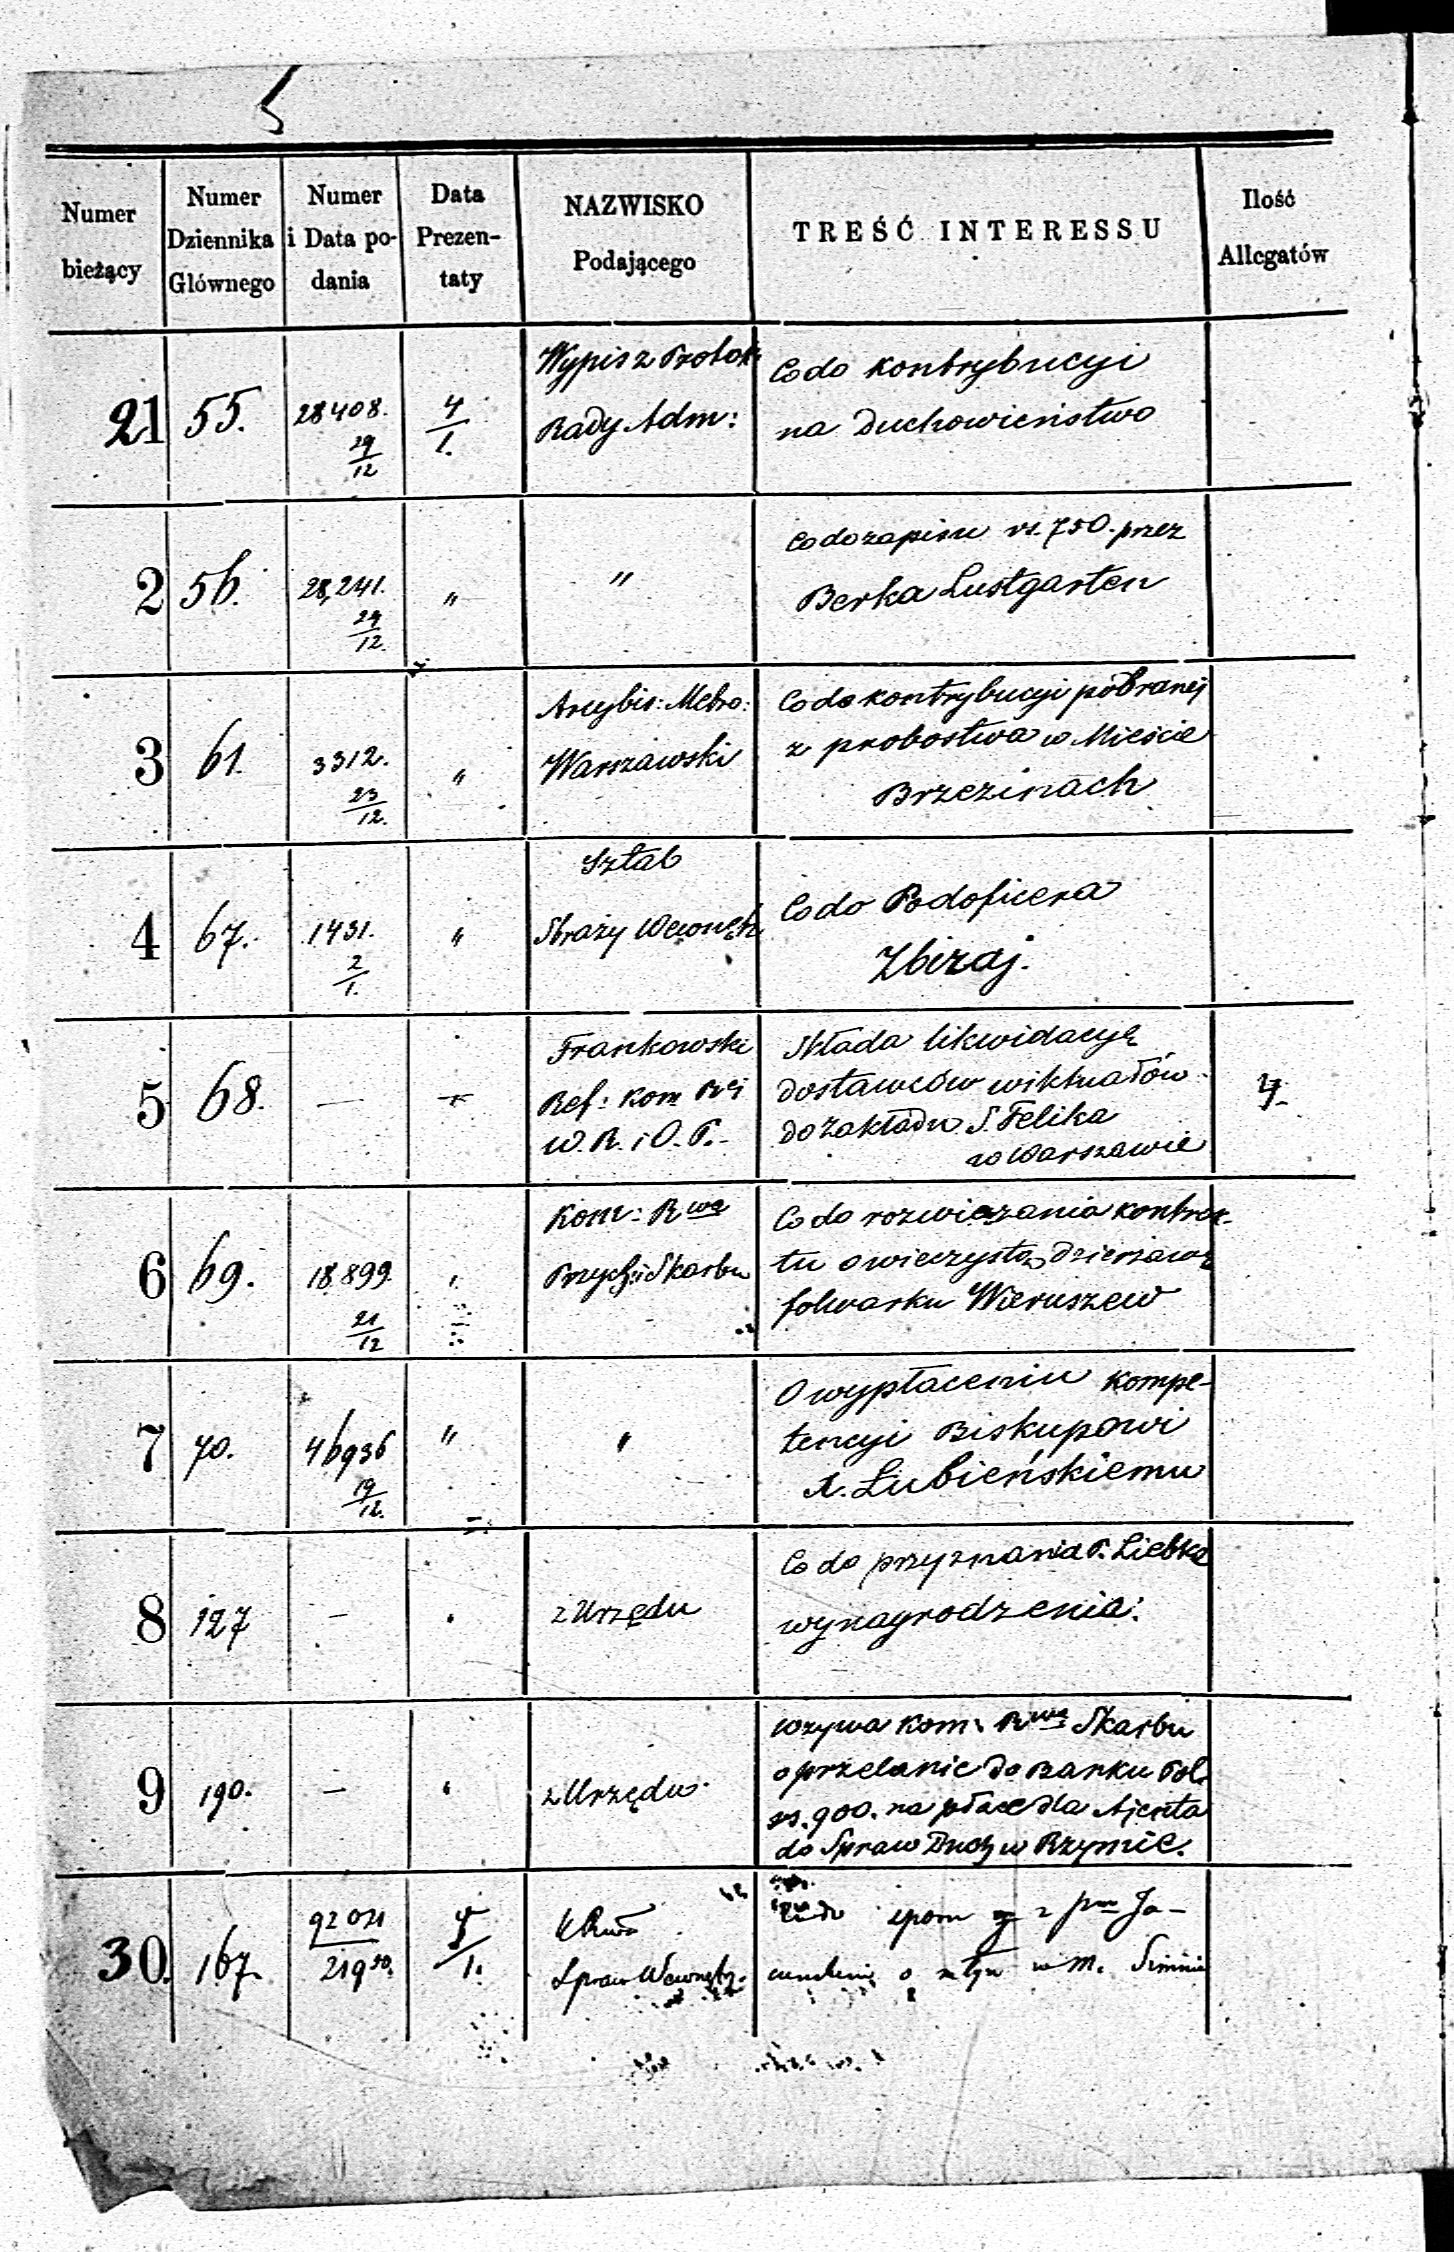 5
Numer bieżący
Numer Dziennika Głównego
Numer i Data podania
Data Prezentaty
NAZWISKO Podającego
TREŚĆ INTERESSU
Ilość Allegatów
21 55. 28408. 29/12 4/1. Wypis z Protok: Rady Adm: Co do kontrybucyi
na Duchowieństwo
2 56. 28,241. 29/12. " " Co do zapisu rs. 750. przez
Berka Lustgarten
3 61. 3312. 23/12. " Arcybis: Metro: Warszawski Co do kontrybucyi pobranej
z probostwa w Mieście
Brzezinach
4 67. 1431. 2/1. " Sztab Straży Wewnętr. Co do Podoficera
Zbizaj.
5 68. — Frankowski Ref: Kom Rei W. R. i O. P. Składa likwidacyę
dostawców wiktuałów
do Zakładu S. Felika
w Warszawie 4.
6 69. 18899. 21/12 " Kom: Rwa Przych: i Skarbu Co do rozwiązania kontrak-
tu o wieczystą dzierżawę
folwarku Wieruszew
7 70. 46936 19/12. " " O wypłaceniu kompe-
tencyi Biskupowi
Łubieńskiemu
8 127 — " z Urzędu Co do przyznania P. Liebke
wynagrodzenia:
9 190. — " z Urzędu. Wzywa Kom: Rwa Skarbu
o przelanie do Banku Pol.
rs. 900. na płacę dla Ajenta
do Spraw Duch w Rzymie.
30. 167. 92021 5/1. K Rwa Spraw Wewnętrz. Co do sporu z
o młyn w m.